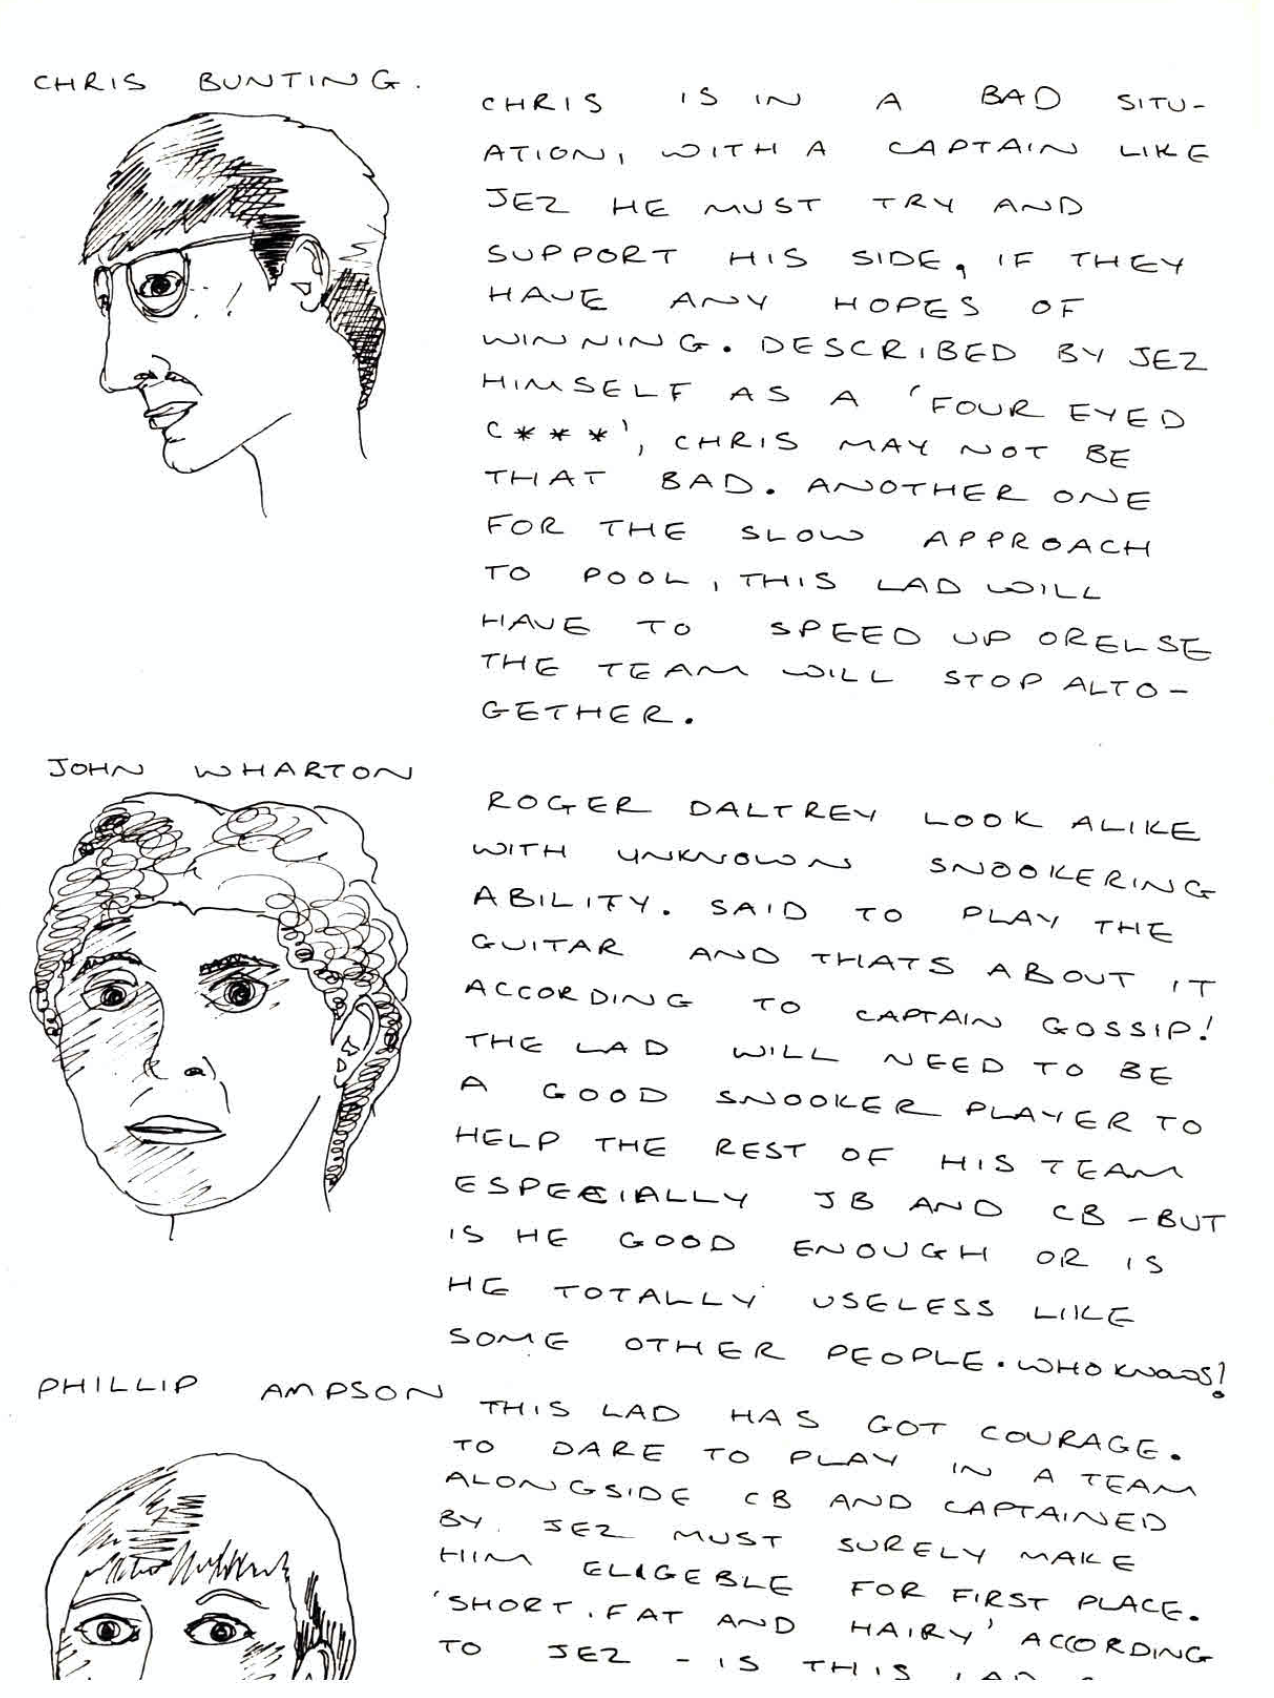 CHRIS BUNTING.
CHRIS IS IN A BAD SITU-
ATION, WITH A CAPTAIN LIKE
JEZ HE MUST TRY AND
SUPPORT HIS SIDE, IF THEY
HAVE ANY HOPES OF
WINNING. DESCRIBED BY JEZ
HIMSELF AS A 'FOUR EYED
C***', CHRIS MAY NOT BE
THAT BAD. ANOTHER ONE
FOR THE SLOW APPROACH
TO POOL, THIS LAD WILL
HAVE TO SPEED UP ORELSE
THE TEAM WILL STOP ALTO-
GETHER.
JOHN WHARTON
ROGER DALTREY LOOK ALIKE
WITH UNKNOWN SNOOKERING
ABILITY. SAID TO PLAY THE
GUITAR AND THATS ABOUT IT
ACCORDING TO CAPTAIN GOSSIP!
THE LAD WILL NEED TO BE
A GOOD SNOOKER PLAYER TO
HELP THE REST OF HIS TEAM
ESPECIALLY JB AND CB - BUT
IS HE GOOD ENOUGH OR IS
HE TOTALLY USELESS LIKE
SOME OTHER PEOPLE. WHO KNOWS!
PHILLIP AMPSON
THIS LAD HAS GOT COURAGE.
TO DARE TO PLAY IN A TEAM
ALONGSIDE CB AND CAPTAINED
BY JEZ MUST SURELY MAKE
HIM ELIGEBLE FOR FIRST PLACE.
'SHORT, FAT AND HAIRY' ACCORDING
TO JEZ - IS THIS LAD